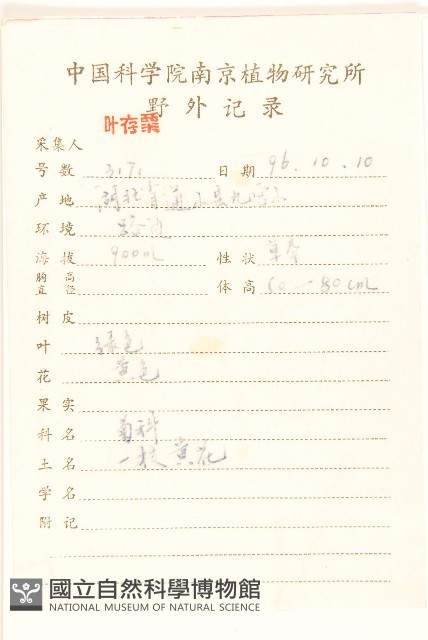 中国科学院南京植物研究所
野外记录
叶存粟
采集人
号数 3171 日期 96.10.10
产地 湖北
环境 路边
海拔 900m 性状 草本
胸高直径 体高 60-80cm
树皮
叶 绿色
花 黄色
果实
科名 菊科
土名 一枝黄花
学名
附记
國立自然科學博物館
NATIONAL MUSEUM OF NATURAL SCIENCE